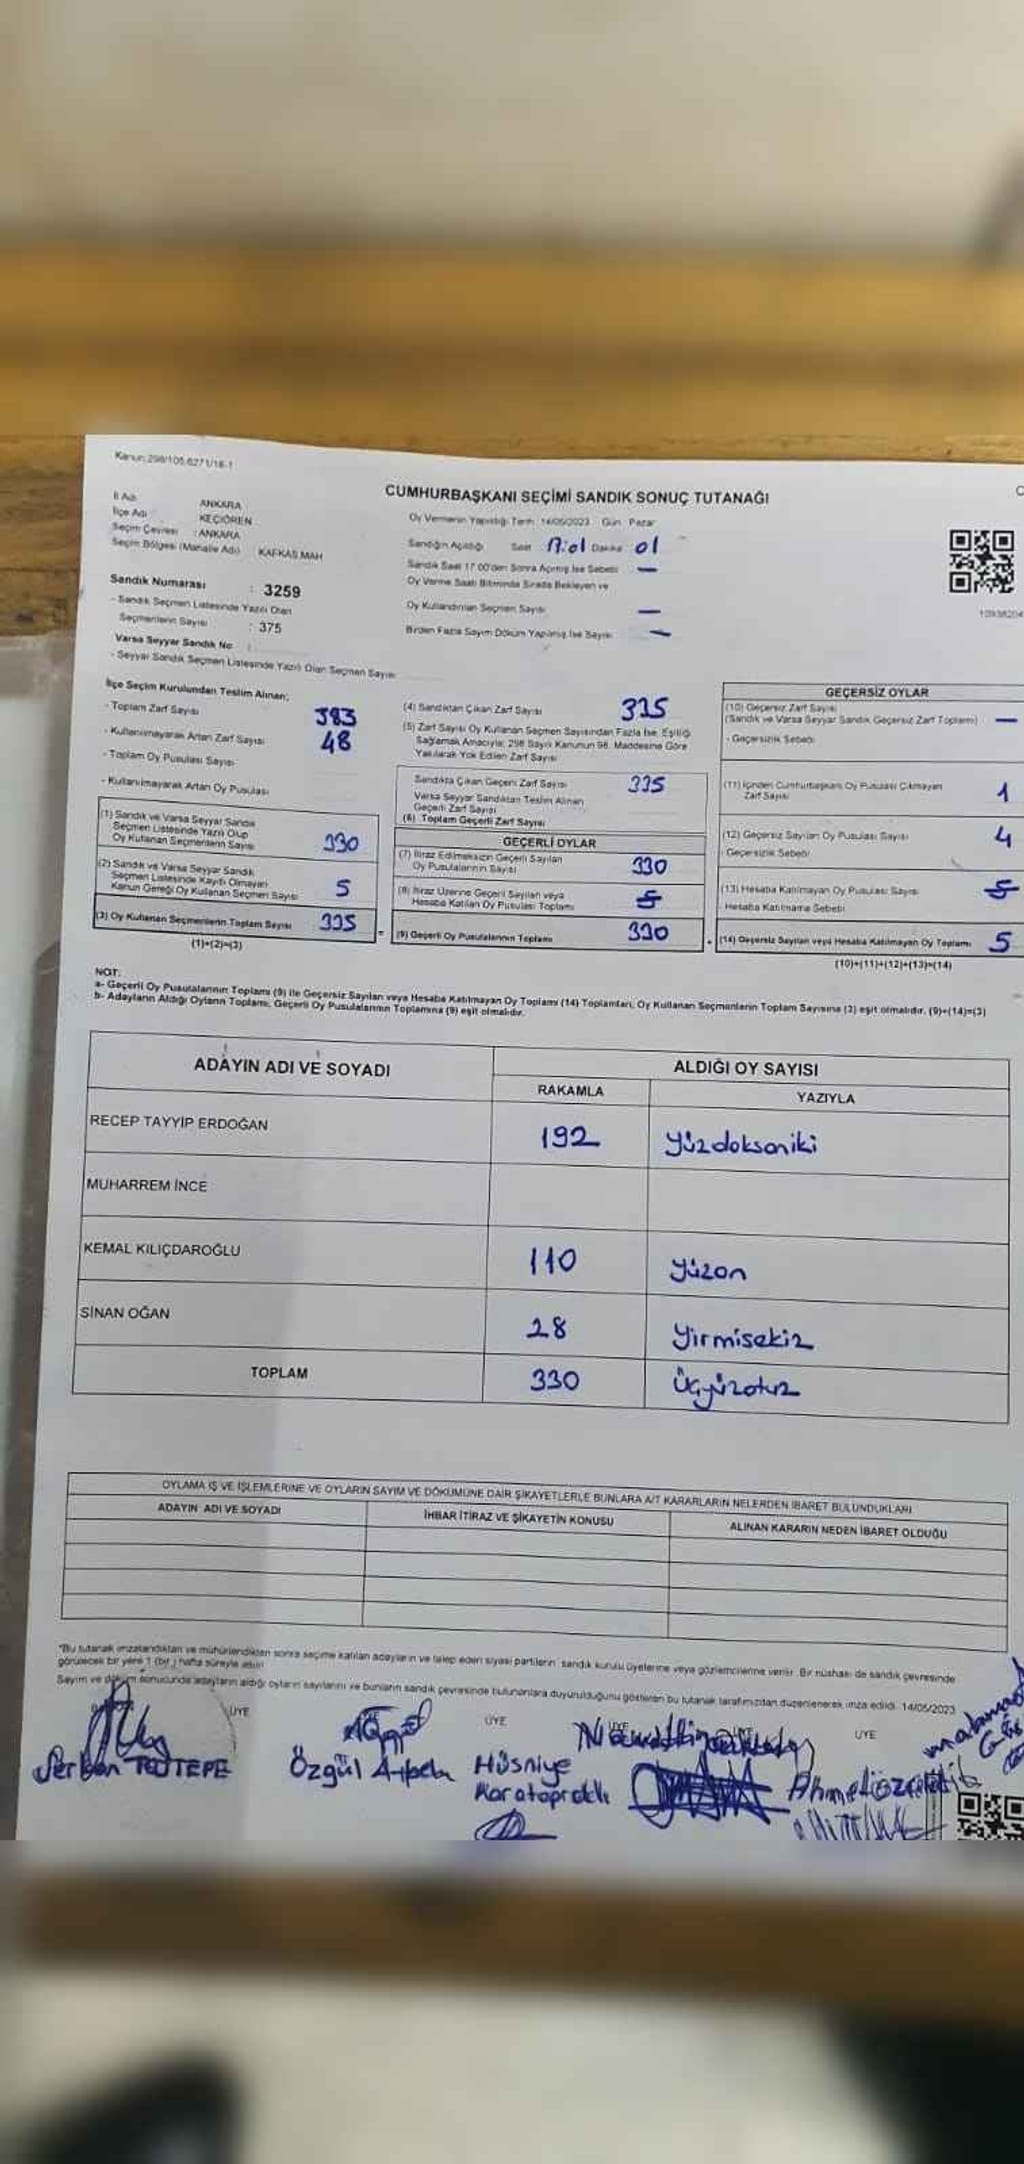 Kanun:298/105,6271/18-1
CUMHURBAŞKANI SEÇİMİ SANDIK SONUÇ TUTANAĞI
İl Adı ANKARA
İlçe Adı KEÇİÖREN
Seçim Çevresi : ANKARA
Seçim Bölgesi (Mahalle Adı) KAFKAS MAH
Sandık Numarası : 3259
- Sandık Seçmen Listesinde Yazılı Olan
Seçmenlerin Sayısı : 375
Varsa Seyyar Sandık No :
- Seyyar Sandık Seçmen Listesinde Yazılı Olan Seçmen Sayısı
Oy Vermenin Yapıldığı Tarih 14/05/2023 Gün Pazar
Sandığın Açıldığı Saat 17:01 Dakika 01
Sandık Saat 17.00'den Sonra Açılmış İse Sebebi —
Oy Verme Saati Bitiminde Sırada Bekleyen ve
Oy Kullandırılan Seçmen Sayısı —
Birden Fazla Sayım Döküm Yapılmış İse Sayısı —
İlçe Seçim Kurulundan Teslim Alınan;
- Toplam Zarf Sayısı 383
- Kullanılmayarak Artan Zarf Sayısı 48
- Toplam Oy Pusulası Sayısı
- Kullanılmayarak Artan Oy Pusulası
(1) Sandık ve Varsa Seyyar Sandık
Seçmen Listesinde Yazılı Olup
Oy Kullanan Seçmenlerin Sayısı 330
(2) Sandık ve Varsa Seyyar Sandık
Seçmen Listesinde Kayıtlı Olmayan
Kanun Gereği Oy Kullanan Seçmen Sayısı 5
(3) Oy Kullanan Seçmenlerin Toplam Sayısı 335
(1)+(2)=(3)
(4) Sandıktan Çıkan Zarf Sayısı 335
(5) Zarf Sayısı Oy Kullanan Seçmen Sayısından Fazla İse, Eşitliği
Sağlamak Amacıyla; 298 Sayılı Kanunun 98. Maddesine Göre
Yakılarak Yok Edilen Zarf Sayısı
Sandıkta Çıkan Geçerli Zarf Sayısı 335
Varsa Seyyar Sandıktan Teslim Alınan
Geçerli Zarf Sayısı
(6) Toplam Geçerli Zarf Sayısı
GEÇERLİ OYLAR
(7) İtiraz Edilmeksizin Geçerli Sayılan
Oy Pusulalarının Sayısı 330
(8) İtiraz Üzerine Geçerli Sayılan veya
Hesaba Katılan Oy Pusulası Toplamı
(9) Geçerli Oy Pusulalarının Toplamı 330
GEÇERSİZ OYLAR
(10) Geçersiz Zarf Sayısı
(Sandık ve Varsa Seyyar Sandık Geçersiz Zarf Toplamı) —
- Geçersizlik Sebebi
(11) İçinden Cumhurbaşkanı Oy Pusulası Çıkmayan
Zarf Sayısı 1
(12) Geçersiz Sayılan Oy Pusulası Sayısı 4
- Geçersizlik Sebebi
(13) Hesaba Katılmayan Oy Pusulası Sayısı
Hesaba Katılmama Sebebi
(14) Geçersiz Sayılan veya Hesaba Katılmayan Oy Toplamı 5
(10)+(11)+(12)+(13)=(14)
NOT:
a- Geçerli Oy Pusulalarının Toplamı (9) ile Geçersiz Sayılan veya Hesaba Katılmayan Oy Toplamı (14) Toplamları, Oy Kullanan Seçmenlerin Toplam Sayısına (3) eşit olmalıdır. (9)+(14)=(3)
b- Adayların Aldığı Oyların Toplamı, Geçerli Oy Pusulalarının Toplamına (9) eşit olmalıdır.
ADAYIN ADI VE SOYADI ALDIĞI OY SAYISI
RAKAMLA YAZIYLA
RECEP TAYYİP ERDOĞAN 192 Yüzdoksaniki
MUHARREM İNCE
KEMAL KILIÇDAROĞLU 110 Yüzon
SİNAN OĞAN 28 Yirmisekiz
TOPLAM 330 Üçyüzotuz
OYLAMA İŞ VE İŞLEMLERİNE VE OYLARIN SAYIM VE DÖKÜMÜNE DAİR ŞİKAYETLERLE BUNLARA AİT KARARLARIN NELERDEN İBARET BULUNDUKLARI
ADAYIN ADI VE SOYADI İHBAR İTİRAZ VE ŞİKAYETİN KONUSU ALINAN KARARIN NEDEN İBARET OLDUĞU
*Bu tutanak imzalandıktan ve mühürlendikten sonra seçime katılan adayların ve talep eden siyasi partilerin sandık kurulu üyelerine veya gözlemcilerine verilir. Bir nüshası de sandık çevresinde
görülecek bir yere 1 (bir) hafta süreyle asılır.
Sayım ve döküm sonucunda adayların aldığı oyların sayılarını ve bunların sandık çevresinde bulunanlara duyurulduğunu gösteren bu tutanak tarafımızdan düzenlenerek imza edildi. 14/05/2023
ÜYE ÜYE ÜYE
Özgül
Hüsniye